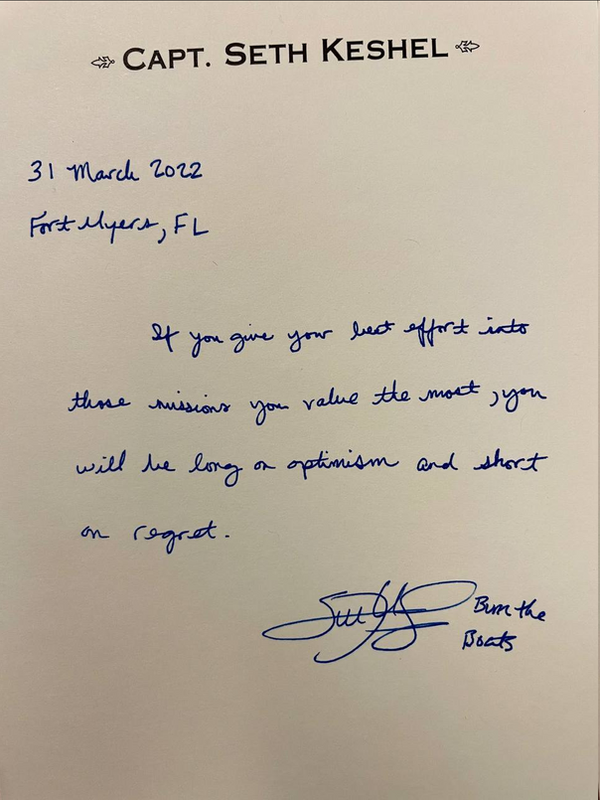 CAPT. SETH KESHEL
31 March 2022
Fort Myers, FL
If you give your best effort into
those missions you value the most, you
will be long on optimism and short
on regret.
Burn the
Boats